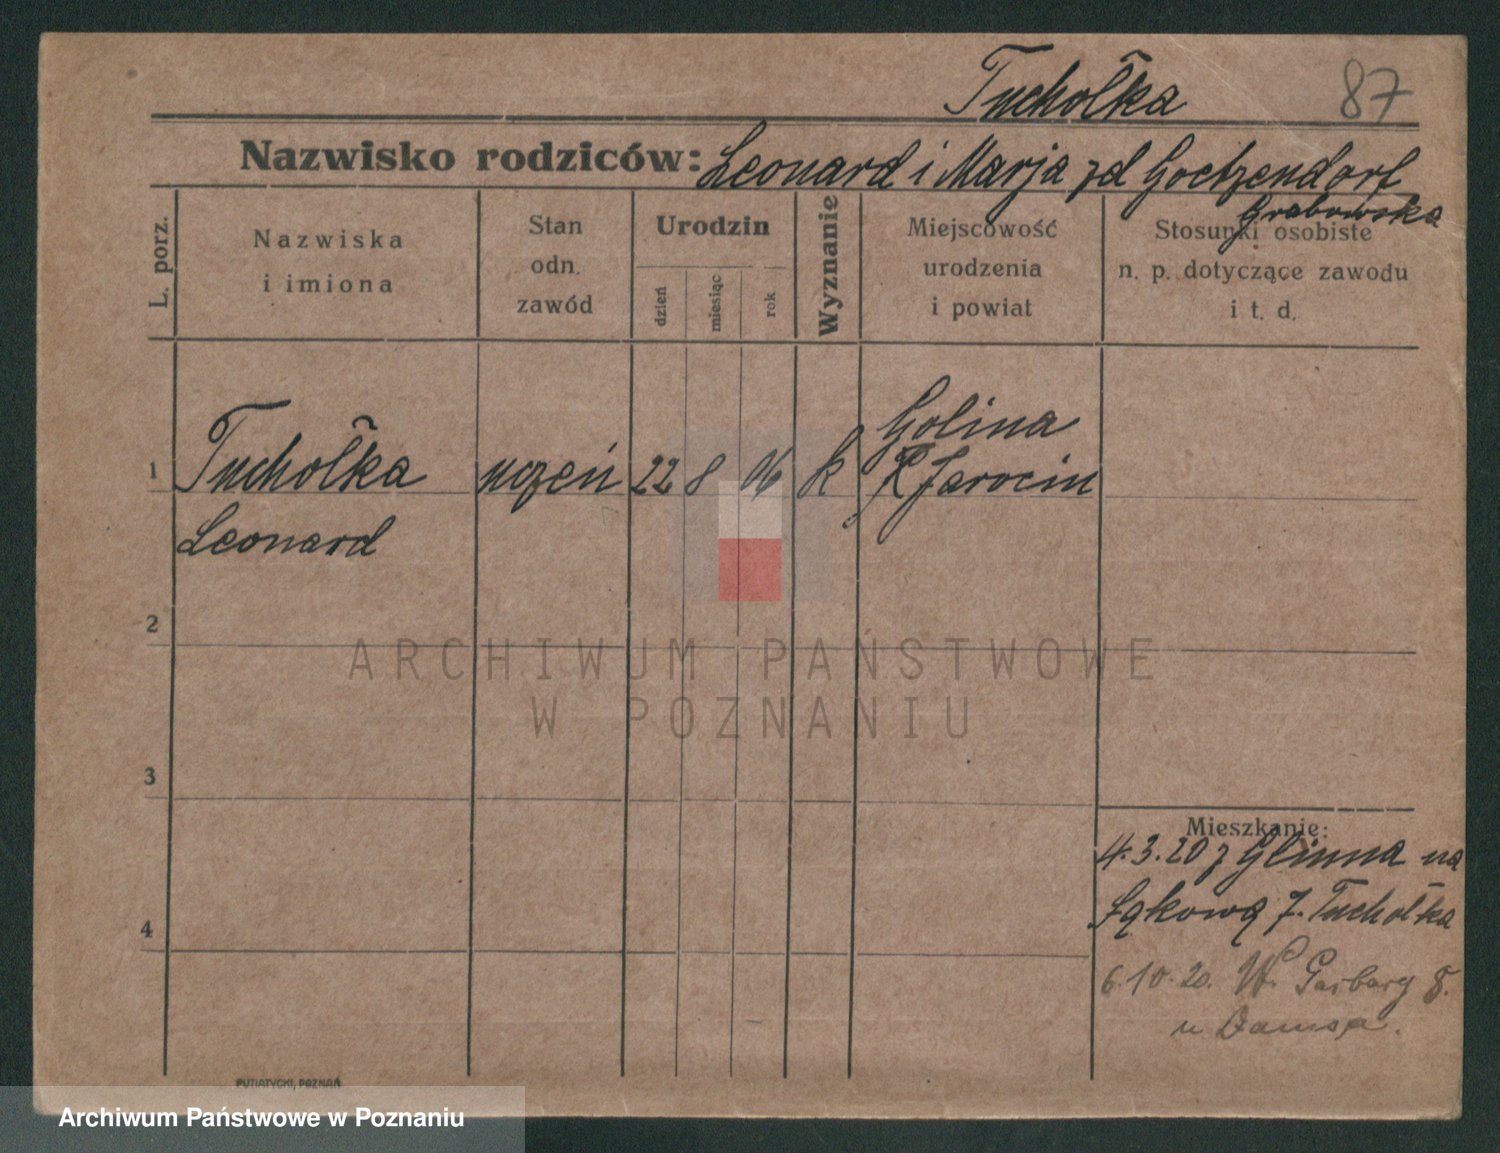 Tucholka
87
Nazwisko rodziców: Leonard i Marja zd Goetzendorf
Grabowska
L. porz.
Nazwiska
i imiona
Stan
odn.
zawód
Urodzin
dzień
miesiąc
rok
Wyznanie
Miejscowość
urodzenia
i powiat
Stosunki osobiste
n. p. dotyczące zawodu
i t. d.
1
Tucholka uczeń 22 8 06 k Golina
Jarocin
Leonard
2
3
4
Mieszkanie:
4.3.20 z Glinna na
Łąkową 7. Tucholka
6.10.20. W. Garbary 8.
u Damsa.
PUTIATYCKI, POZNAŃ
ARCHIWUM PAŃSTWOWE
W POZNANIU
Archiwum Państwowe w Poznaniu